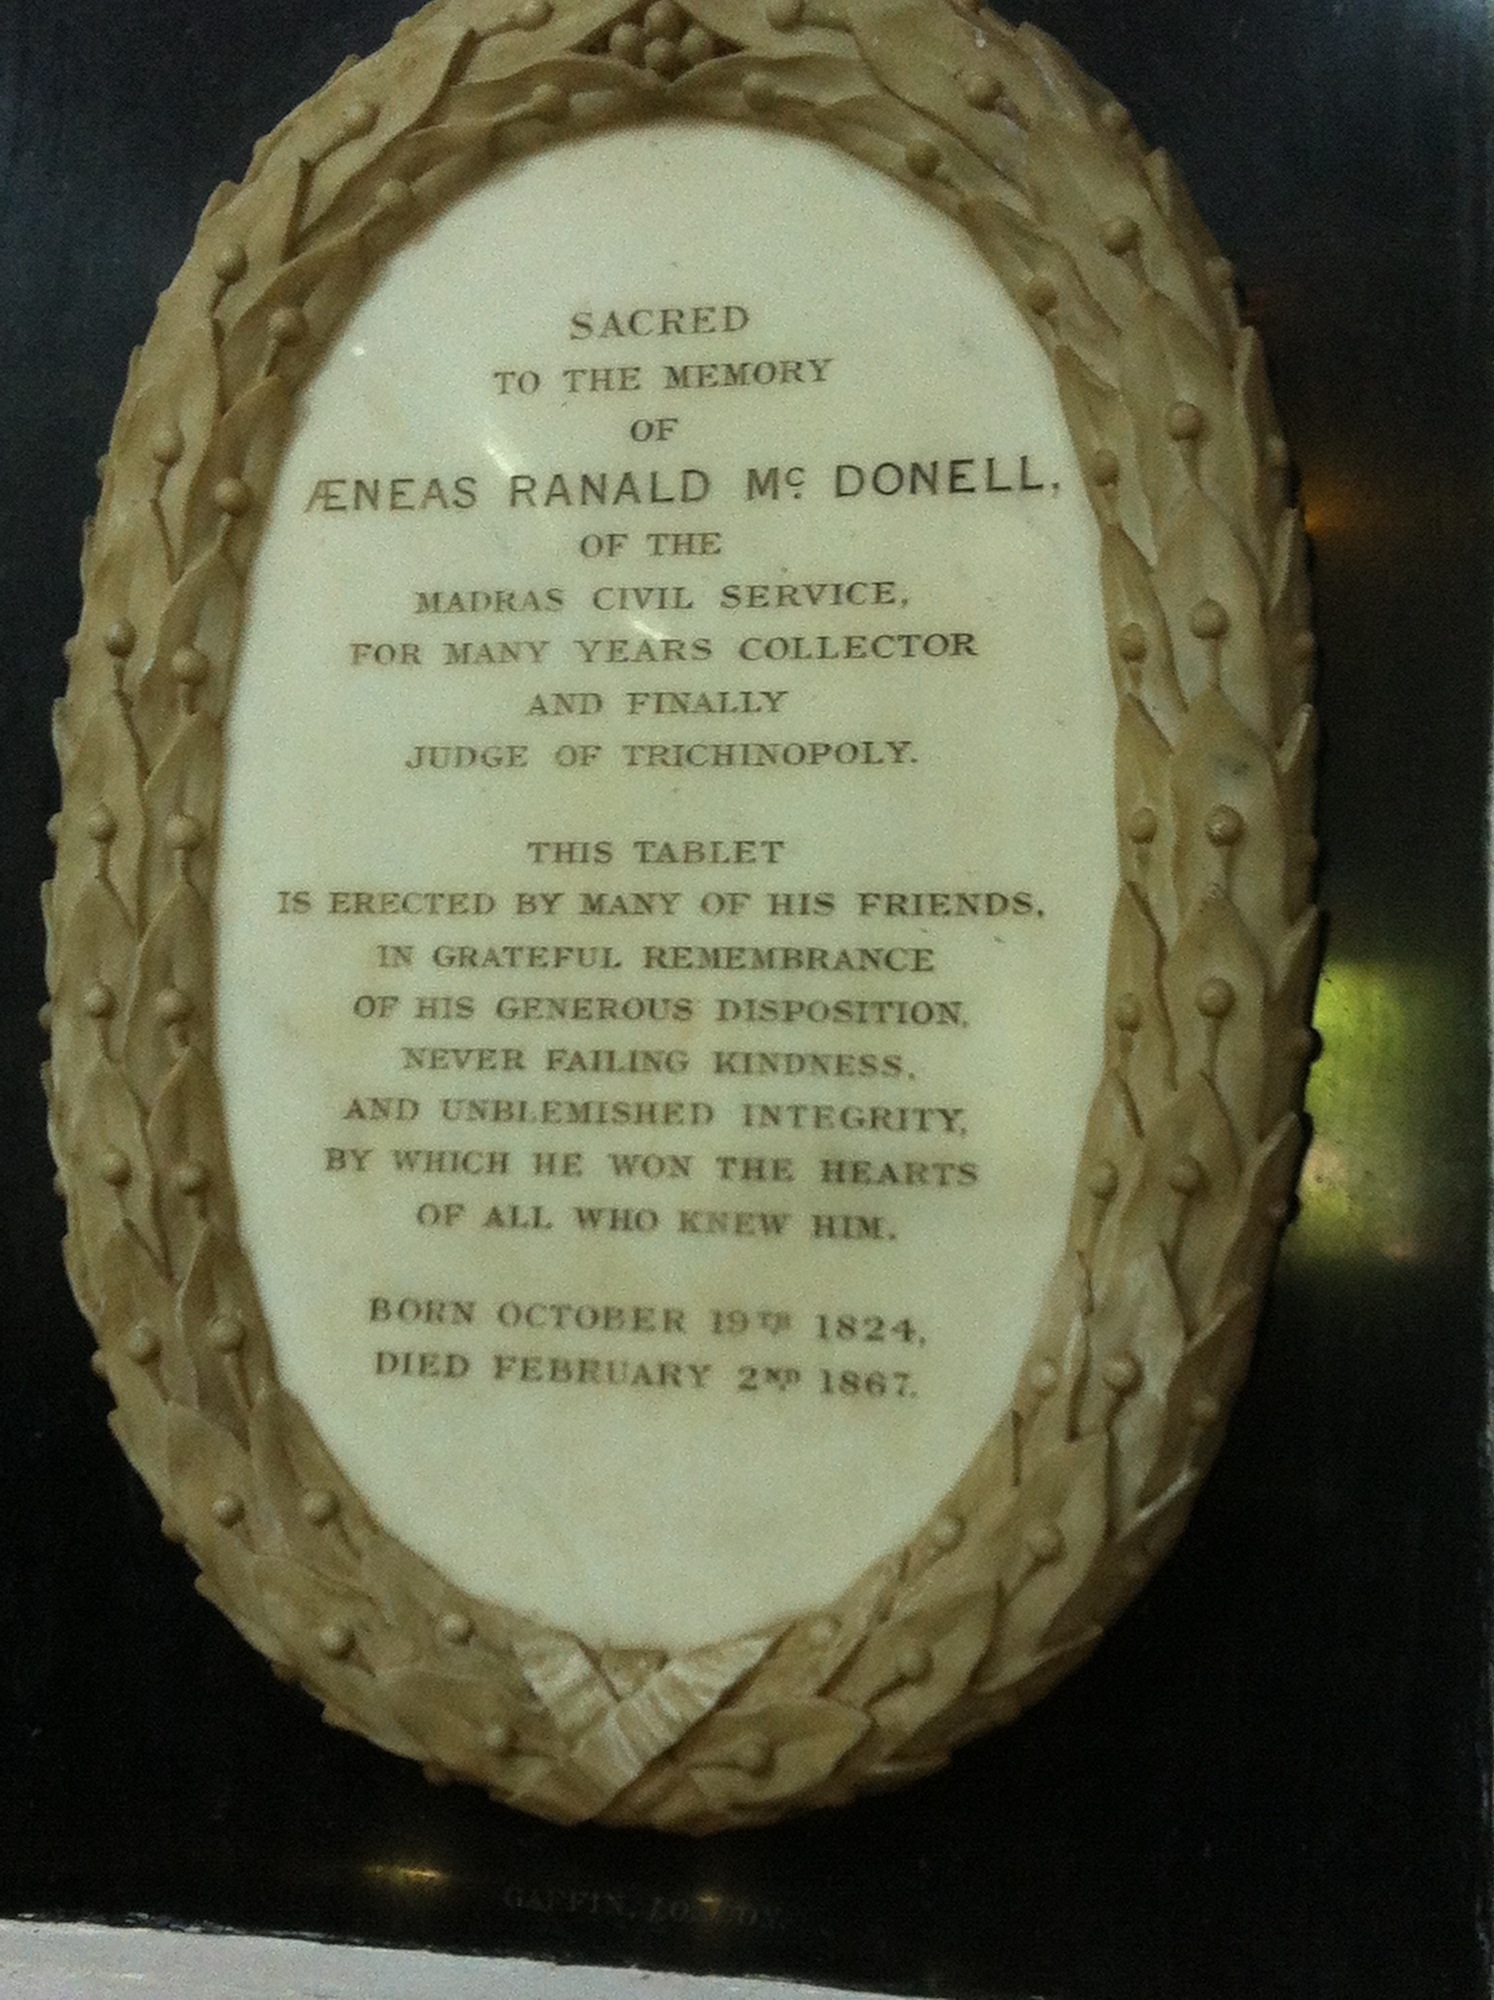 SACRED
TO THE MEMORY
OF
ÆNEAS RANALD Mc DONELL,
OF THE
MADRAS CIVIL SERVICE,
FOR MANY YEARS COLLECTOR
AND FINALLY
JUDGE OF TRICHINOPOLY.
THIS TABLET
IS ERECTED BY MANY OF HIS FRIENDS,
IN GRATEFUL REMEMBRANCE
OF HIS GENEROUS DISPOSITION,
NEVER FAILING KINDNESS,
AND UNBLEMISHED INTEGRITY,
BY WHICH HE WON THE HEARTS
OF ALL WHO KNEW HIM.
BORN OCTOBER 19TH 1824,
DIED FEBRUARY 2ND 1867.
GAFFIN, LONDON.